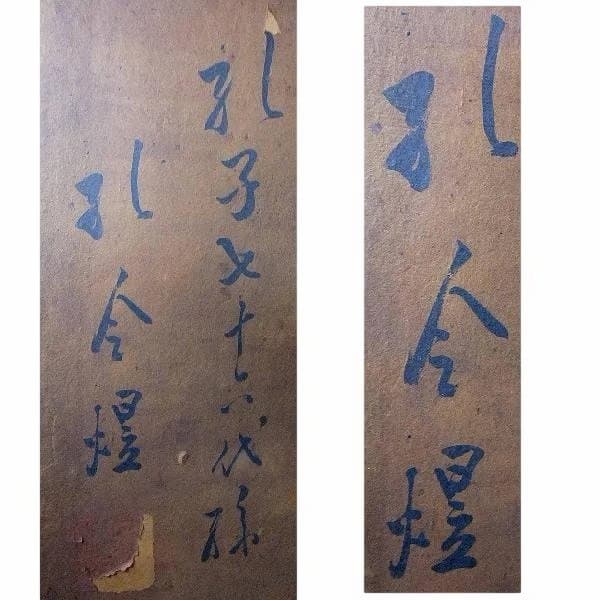 孔子七十六代孫
孔令煜
孔令煜